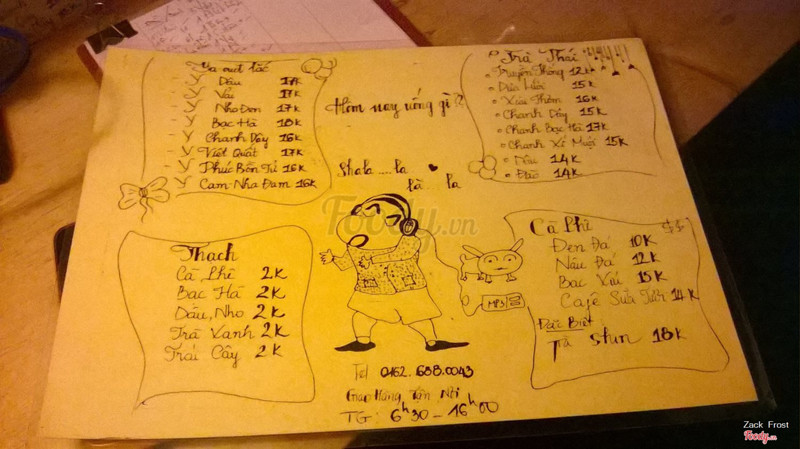 Ya out lắc
Dâu 17K
Vải 17K
Nho Đen 17K
Bạc Hà 18K
Chanh Dây 16K
Việt Quất 17K
Phúc Bồn Tử 16K
Cam Nha Đam 16K
Hôm nay uống gì?
Shala....la
là... la
Trà Thái
Truyền Thống 12K
Dưa Lưới 15K
Xoài Thơm 16K
Chanh Dây 15K
Chanh Bạc Hà 17K
Chanh Xí Muội 15K
Dâu 14K
Đào 14K
Thạch
Cà Phê 2K
Bạc Hà 2K
Dâu, Nho 2K
Trà Xanh 2K
Trái Cây 2K
Foody.vn
MP3
Cà Phê $$
Đen Đá 10K
Nâu Đá 12K
Bạc Xỉu 15K
Café Sữa Tươi 14K
Đặc Biệt:
Trà Stun 18K
Tel 0462.688.0043
Giao Hàng Tận Nơi
TG: 6h30 - 16h00
Zack Frost
Foody.vn